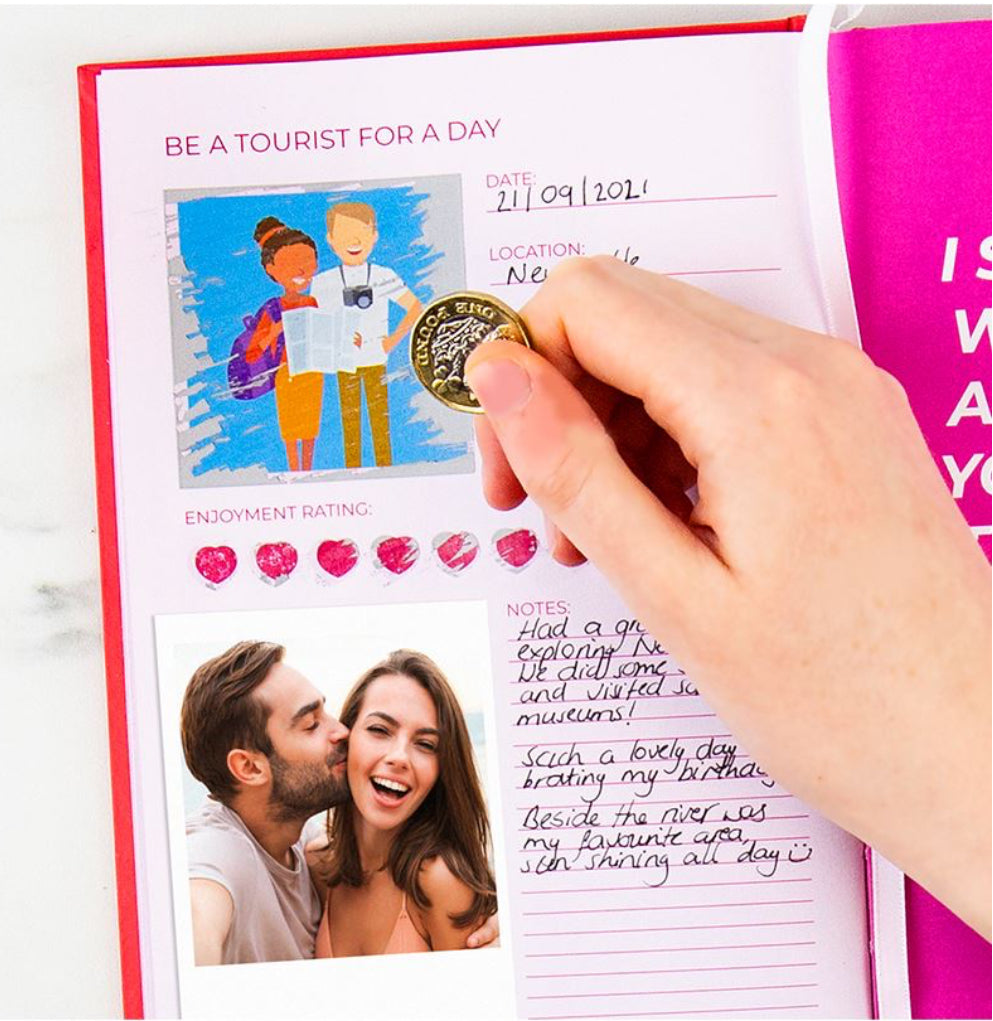 BE A TOURIST FOR A DAY
DATE:
21/09/2021
LOCATION:
ONE POUND
ENJOYMENT RATING:
NOTES:
Had a
exploring
We did some
and visited
museums!
Such a lovely day
brating my birthday
Beside the river was
my favourite area,
sun shining all day
I
A